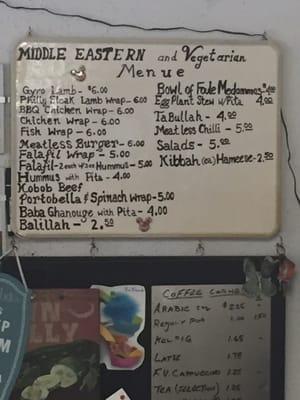 MIDDLE EASTERN and Vegetarian
Menue
Gyro Lamb - $6.00
Philly Steak Lamb Wrap - 6.00
BBQ Chicken Wrap - 6.00
Chicken Wrap - 6.00
Fish Wrap - 6.00
Meatless Burger - 6.00
Falafil Wrap - 5.00
Falafil - 2 each w/2oz Hummus - 5.00
Hummus with Pita - 4.00
Kobob Beef
Portobella & Spinach Wrap - 5.00
Baba Ghanouge with Pita - 4.00
Balillah - 2.50
Bowl of Foule Medammas 4.00
Egg Plant Stew w/Pita 4.00
TaBullah - 4.00
Meatless Chilli - 5.00
Salads - 5.00
Kibbah (ea) Hameese - 2.50
COFFEE
ARABIC $2.25 -
1.00 1.50
1.65 -
LATTE 1.75 -
F.V. CAPPUCCINO 1.25 -
TEA (SELECTION) 1.25 -